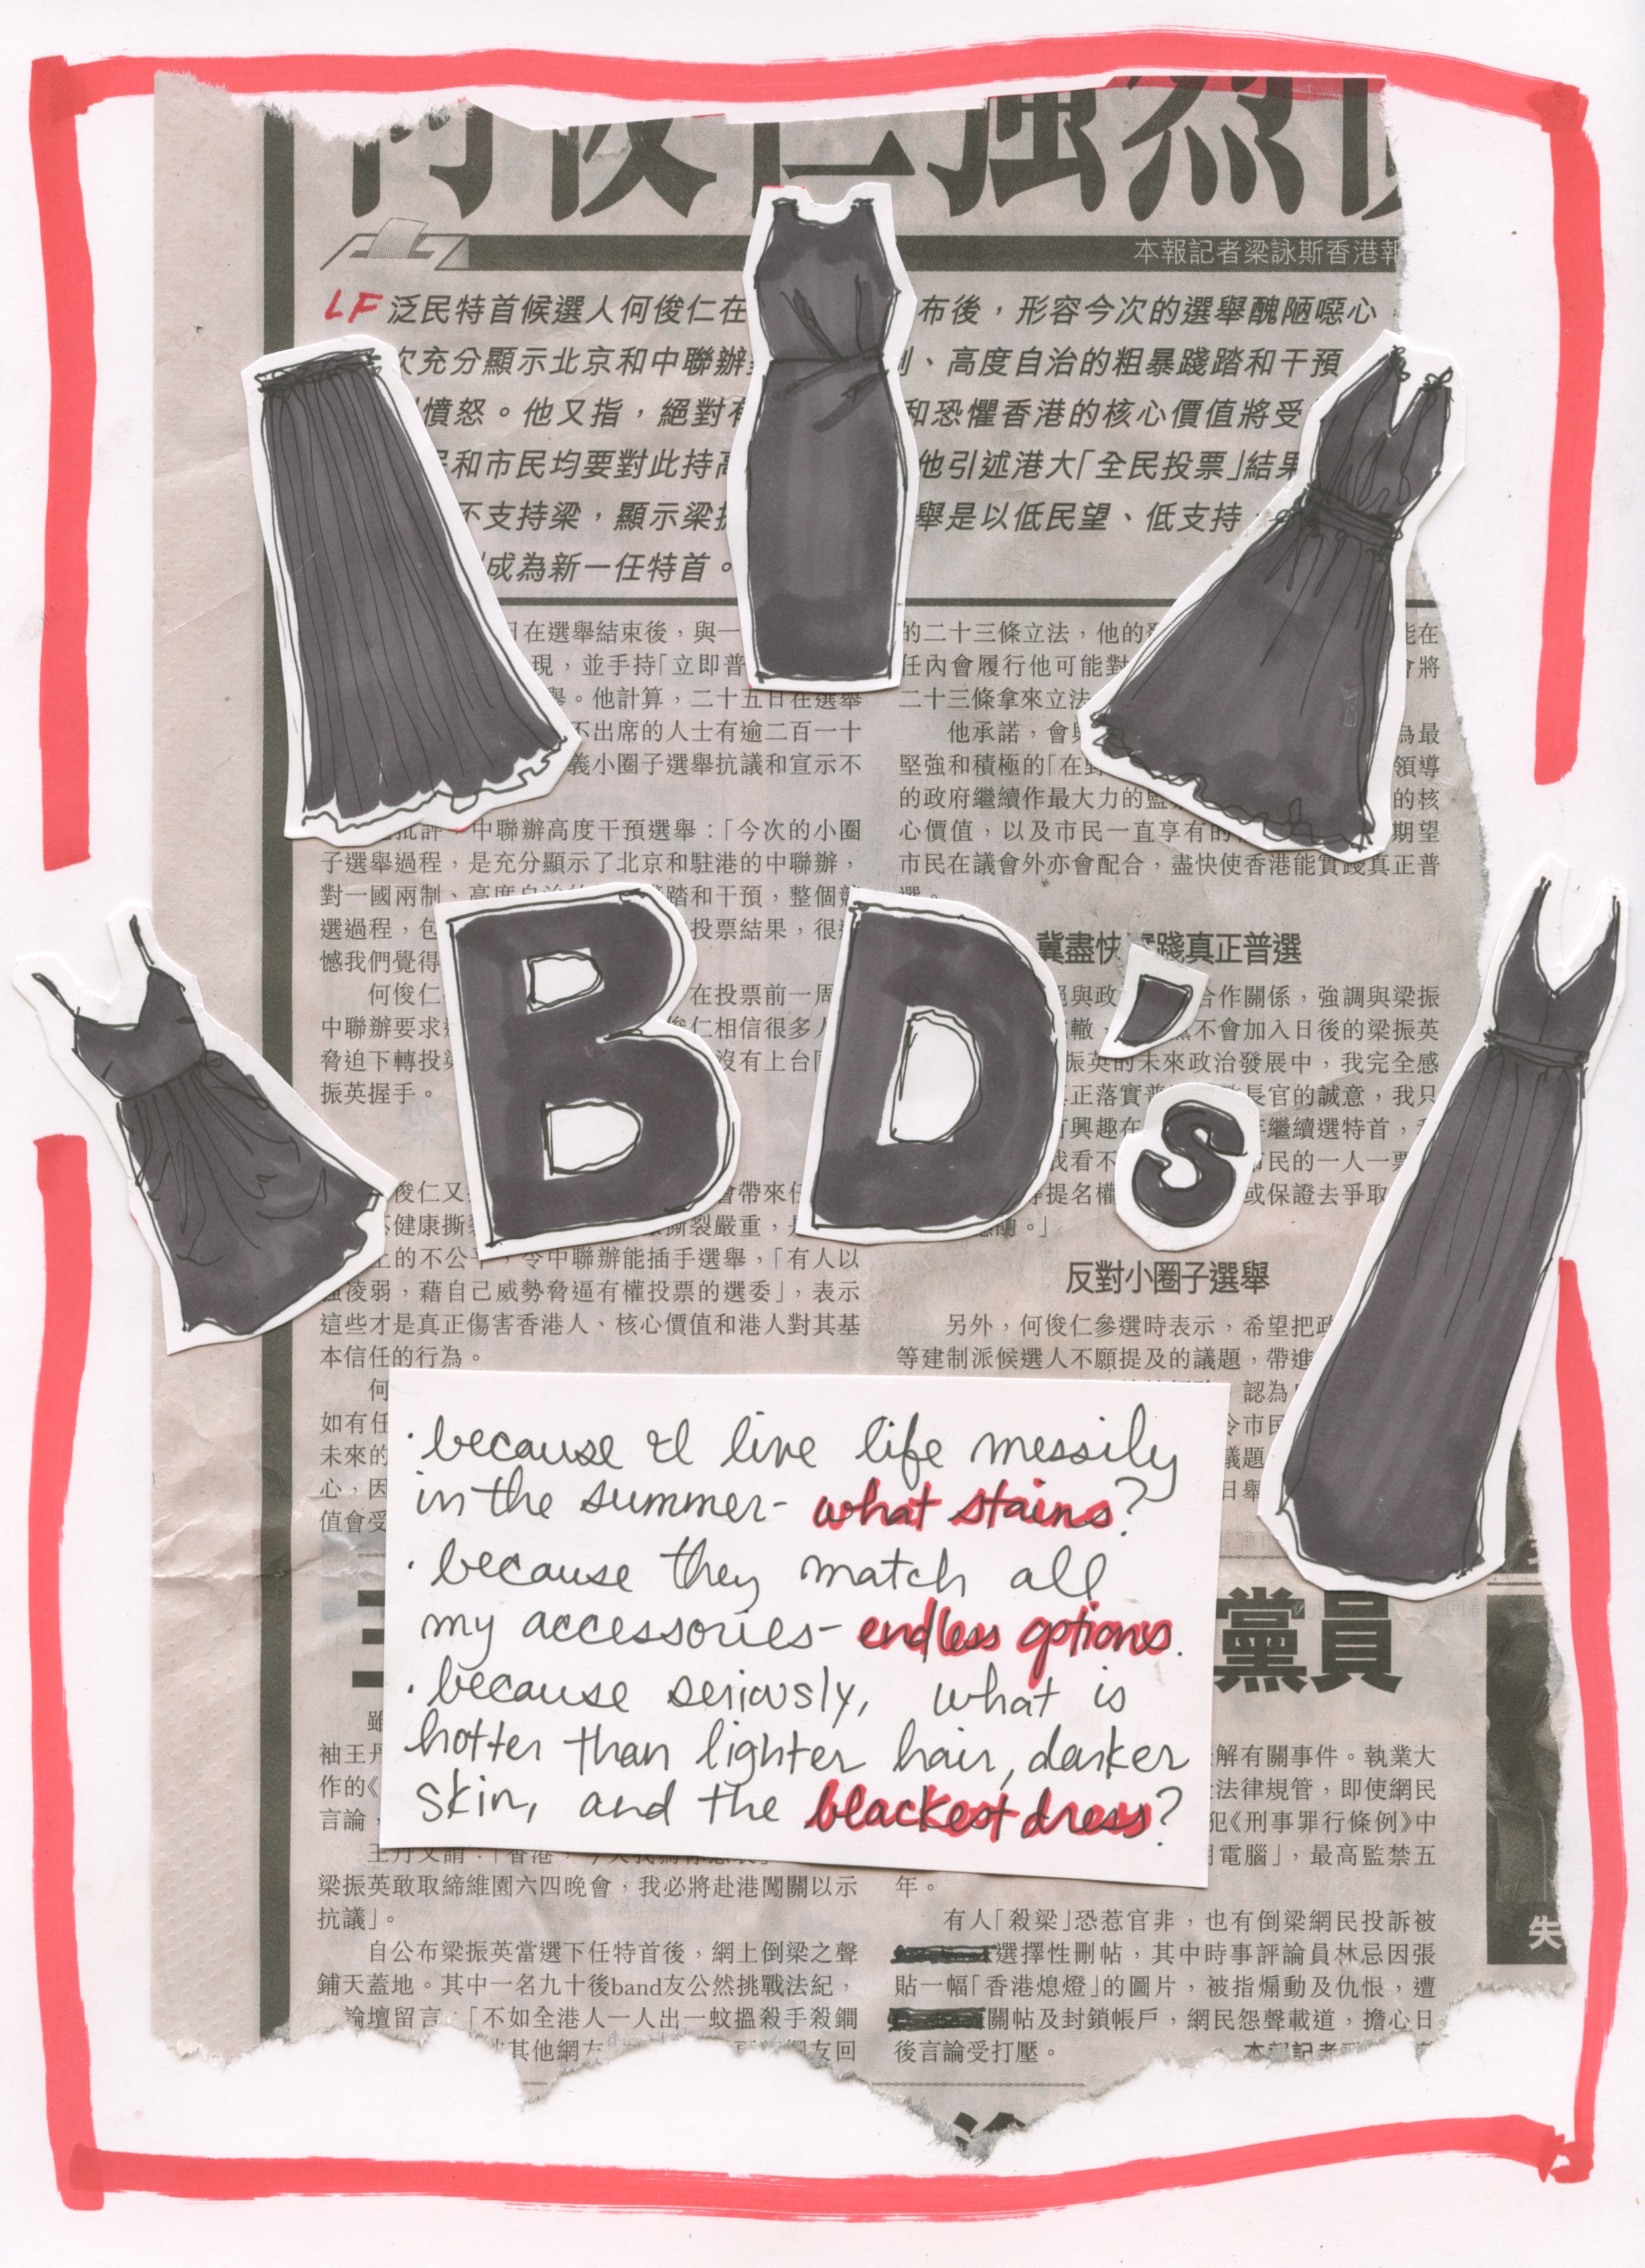 何俊仁強烈
本報記者梁詠斯香港報
LF 泛民特首候選人何俊仁在
布後，形容今次的選舉醜陋噁心
次充分顯示北京和中聯辦
、高度自治的粗暴踐踏和干預
憤怒。他又指，絕對有
和恐懼香港的核心價值將受
和市民均要對此持高
他引述港大「全民投票」結果
不支持梁，顯示梁振
舉是以低民望、低支持
成為新一任特首。
日在選舉結束後，與一
現，並手持「立即普
舉。他計算，二十五日在選舉
不出席的人士有逾二百一十
義小圈子選舉抗議和宣示不
批評，中聯辦高度干預選舉：「今次的小圈
子選舉過程，是充分顯示了北京和駐港的中聯辦，
對一國兩制、高度自治的
踏和干預，整個競
選過程，包
投票結果，很遺
憾我們覺得
何俊仁
在投票前一周
中聯辦要求
俊仁相信很多人
脅迫下轉投梁
沒有上台
振英握手。
俊仁又
會帶來任
健康撕
撕裂嚴重，
上的不公平，令中聯辦能插手選舉，「有人以
強凌弱，藉自己威勢脅逼有權投票的選委」，表示
這些才是真正傷害香港人、核心價值和港人對其基
本信任的行為。
何
如有任
未來的
心，因
值會受
的二十三條立法，他的
能在
任內會履行他可能對
會將
二十三條拿來立法
他承諾，會與
為最
堅強和積極的「在野
領導
的政府繼續作最大力的監
的核
心價值，以及市民一直享有的
期望
市民在議會外亦會配合，盡快使香港能實踐真正普
選。
冀盡快實踐真正普選
與政
合作關係，強調與梁振
轍，
不會加入日後的梁振英
振英的未來政治發展中，我完全感
正落實普
長官的誠意，我只
有興趣在
年繼續選特首，
我看不
市民的一人一票
提名權
或保證去爭取
前。」
反對小圈子選舉
另外，何俊仁參選時表示，希望把政
等建制派候選人不願提及的議題，帶進
認為
令市民
議題
日舉
BD's
·because I live life messily
in the summer- what stains?
·because they match all
my accessories- endless options.
·because seriously, what is
hotter than lighter hair, darker
skin, and the blackest dress?
王
黨員
雖
袖王丹
作的《
言論，
王丹又謂：「香港，今天我為你
梁振英敢取締維園六四晚會，我必將赴港闖關以示
抗議」。
自公布梁振英當選下任特首後，網上倒梁之聲
鋪天蓋地。其中一名九十後band友公然挑戰法紀，
論壇留言：「不如全港人一人出一蚊搵殺手殺鋼
其他網友
友回
解有關事件。執業大
法律規管，即使網民
犯《刑事罪行條例》中
用電腦」，最高監禁五
年。
有人「殺梁」恐惹官非，也有倒梁網民投訴被
選擇性刪帖，其中時事評論員林忌因張
貼一幅「香港熄燈」的圖片，被指煽動及仇恨，遭
關帖及封鎖帳戶，網民怨聲載道，擔心日
後言論受打壓。
本報記者
失